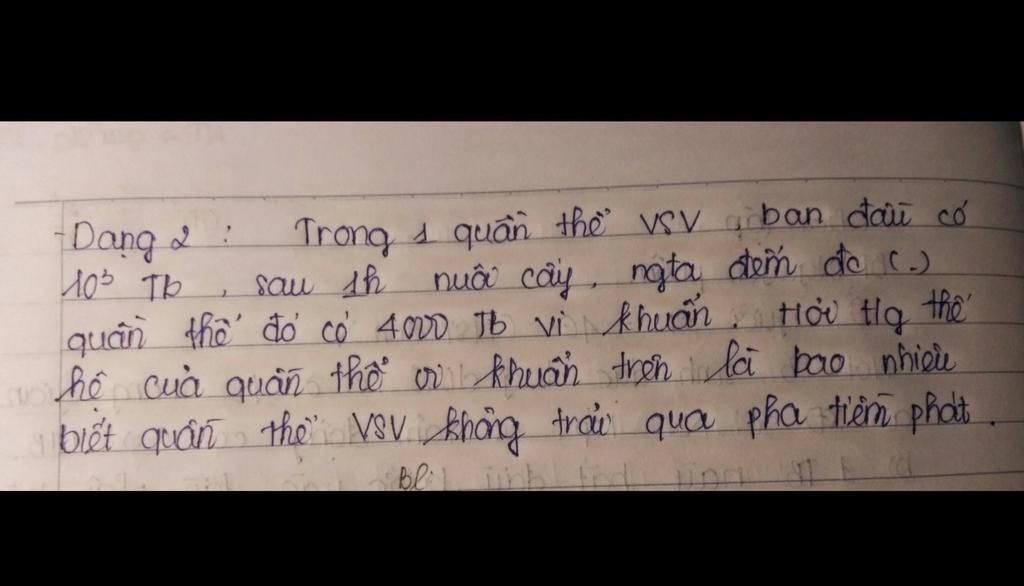 - Dạng 2 : Trong 1 quần thể VSV, ban đầu có
10³ Tb, sau 1h nuôi cấy, ngta đếm đc (.)
quần thể đó có 4000 Tb vi khuẩn. Hỏi tlg thế
hệ của quần thể vi khuẩn trên là bao nhiêu
biết quần thể VSV không trải qua pha tiềm phát.
Bl